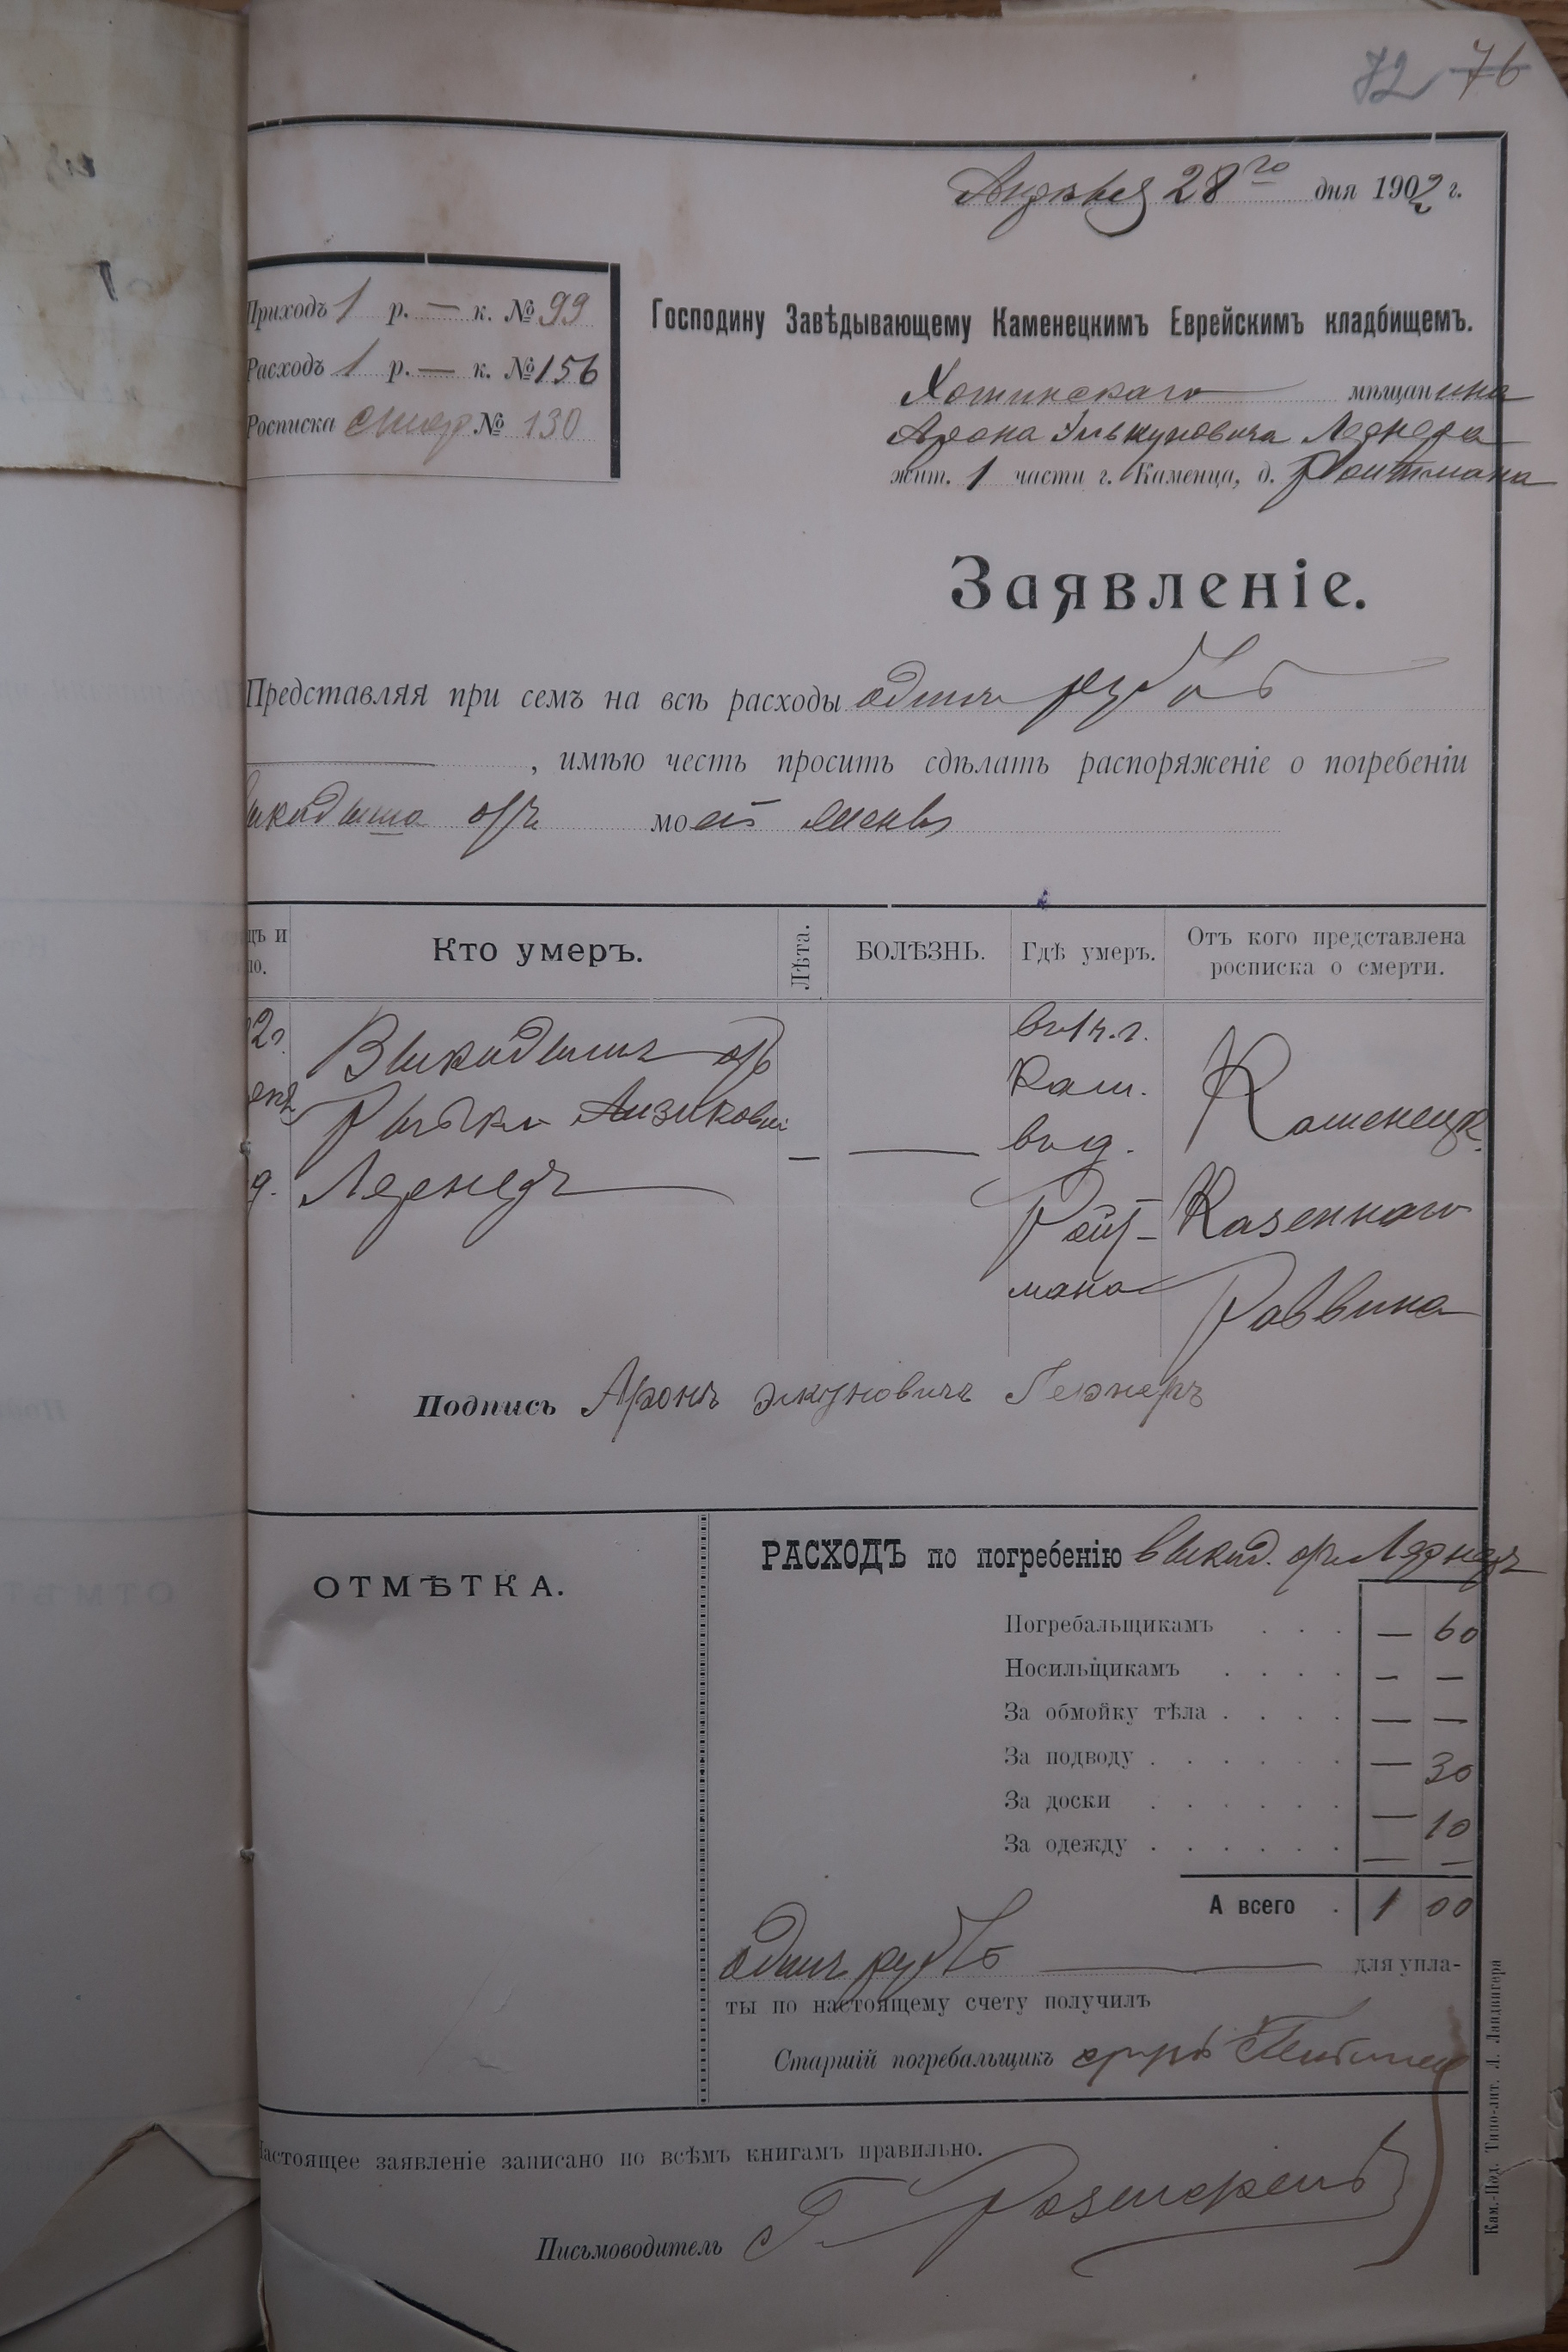 72 76
Апрѣля 28го дня 1902 г.
Приходъ 1 р. — к. № 99
Расходъ 1 р. — к. № 156
Росписка № 130
Господину Завѣдывающему Каменецкимъ Еврейскимъ кладбищемъ.
Хотинскаго мѣщанина
Арона Лернера
жит. 1 части г. Каменца, д. Ройтмана
Заявленіе.
Представляя при семъ на всѣ расходы одинъ рубль
, имѣю честь просить сдѣлать распоряженіе о погребеніи
икидыша отъ моей
цъ и
ло.
Кто умеръ.
Лѣта.
БОЛѢЗНЬ.
Гдѣ умеръ.
Отъ кого представлена
росписка о смерти.
2г.
Выкидышъ отъ
Айзиковны
Лернеръ
—
—
въ 1 ч. г.
Кам.
въ д.
Ройт-
мана
Каменецк.
Казеннаго
Раввина
Подпись Аронъ Элкуновичъ Лернеръ
ОТМѢТКА.
РАСХОДЪ по погребенію выкид. отъ Лернеръ
Погребальщикамъ . . . — 60
Носильщикамъ . . . . — —
За обмойку тѣла . . . . — —
За подводу . . . . . . — 30
За доски . . . . . . — 10
За одежду . . . . . . — —
А всего . 1 00
одинъ рубль — для упла-
ты по настоящему счету получилъ
Старшій погребальщикъ
Настоящее заявленіе записано по всѣмъ книгамъ правильно.
Письмоводитель
Кам.-Под. Типо-лит. Л. Ландвигера